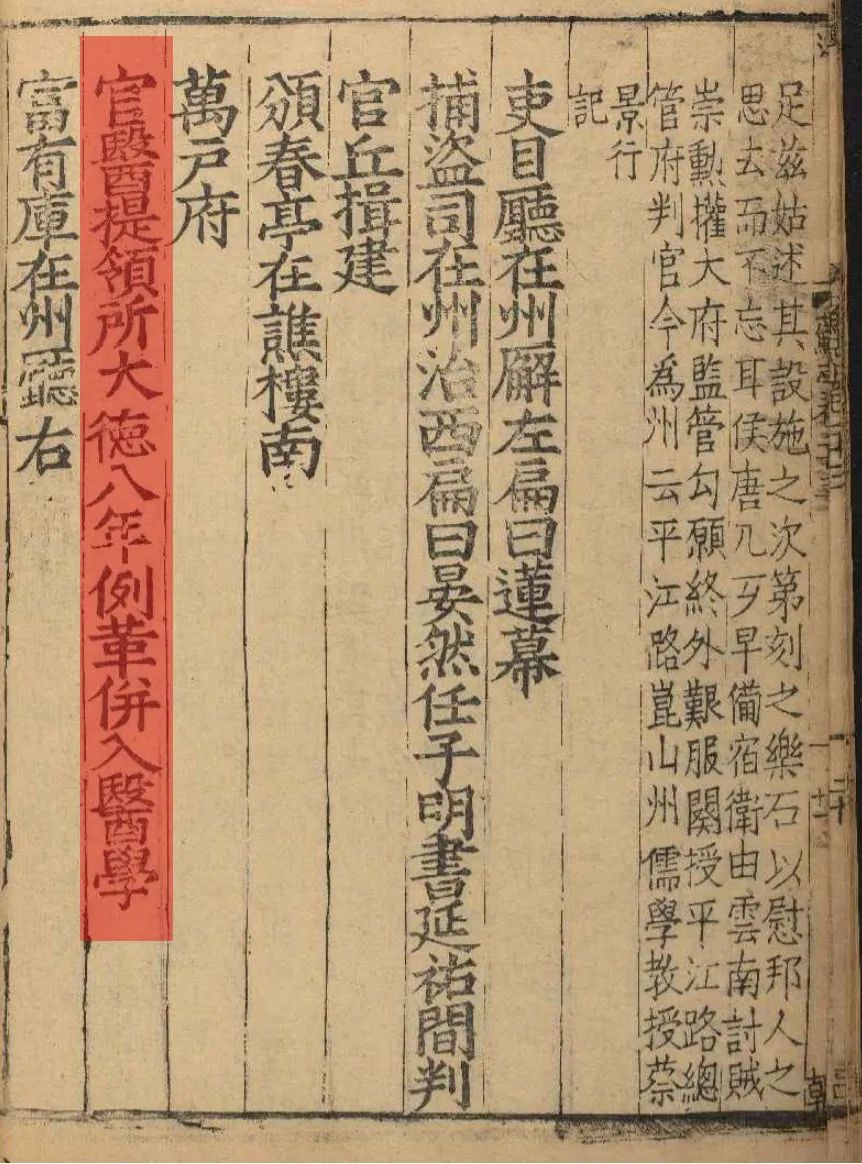 足兹姑述其設施之次第刻之樂石以慰邦人之
思去而不忘耳侯唐兀歹早備宿衛由雲南討賊
崇勳擢大府監管勾願終外艱服闋授平江路緫
管府判官今為州云平江路崑山州儒學教授蔡
景行
記
吏目廳在州廨左扁曰蓮幕
捕盗司在州治西扁曰晏然任子明書延祐間判
官丘揖建
頒春亭在譙樓南
萬戸府
官醫提領所大德八年例革併入醫學
富有庫在州廳右